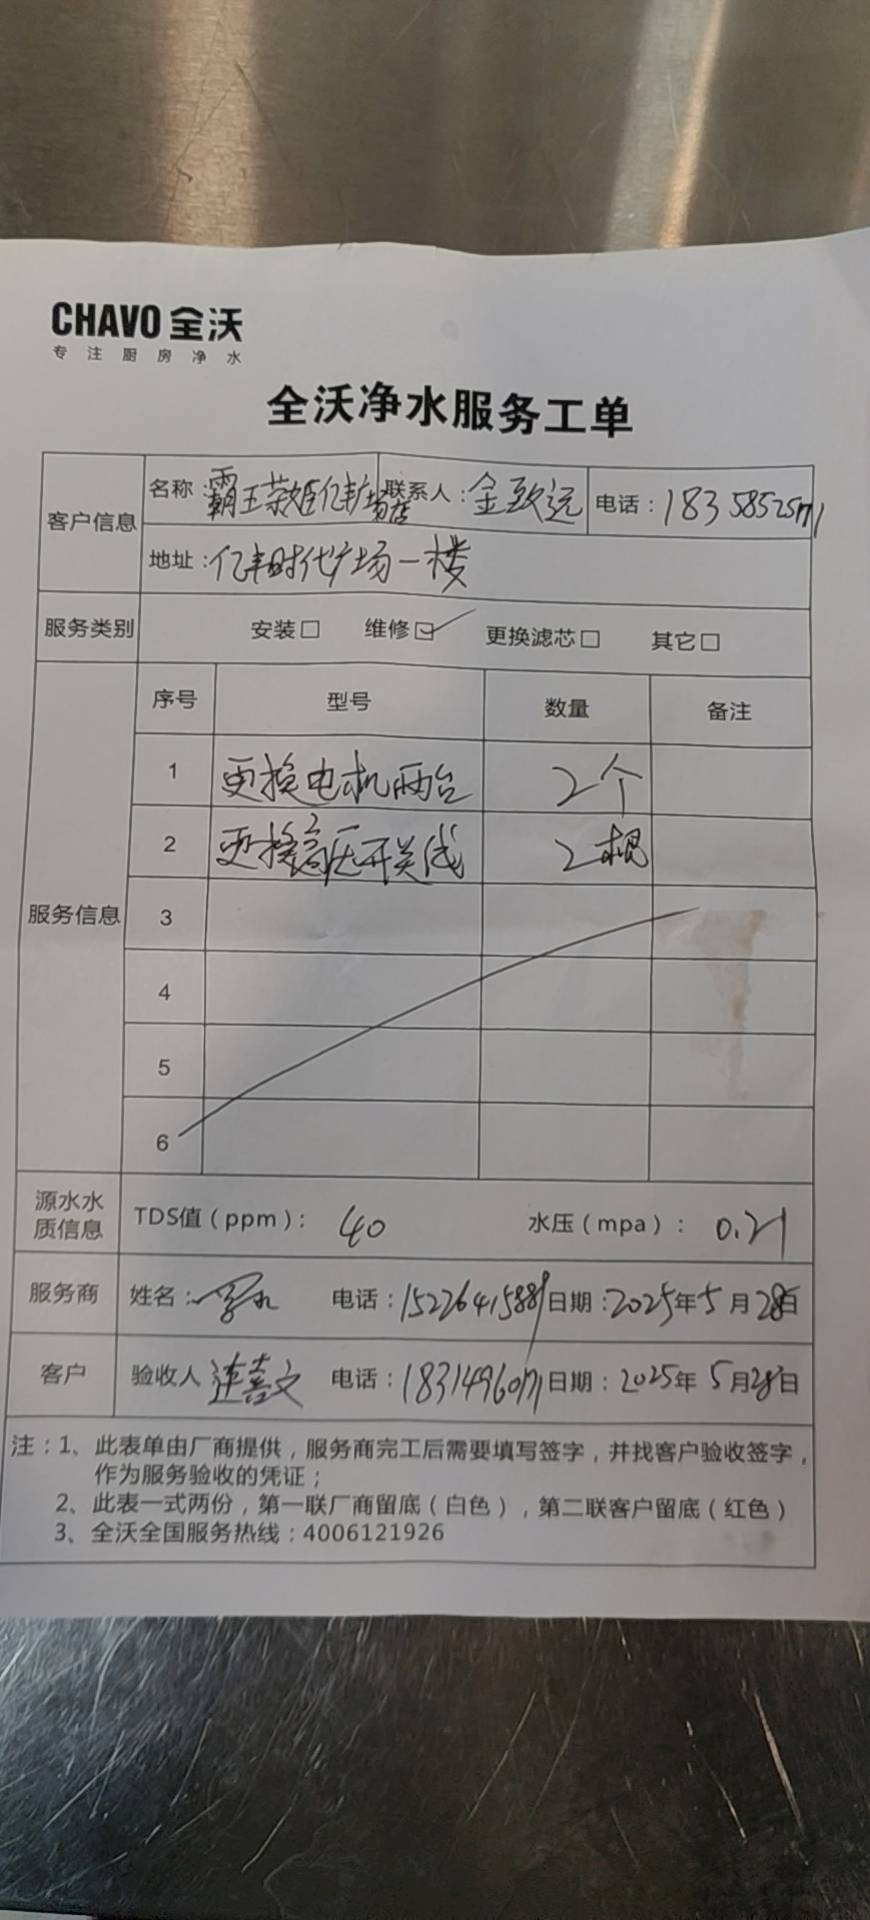 CHAVO 全沃
专注厨房净水
全沃净水服务工单
客户信息 名称：霸王茶姬亿丰广场店 联系人：金致远 电话：18358525771
地址：亿丰时代广场一楼
服务类别 安装□ 维修☑ 更换滤芯□ 其它□
服务信息 序号 型号 数量 备注
1 更换电机两台 2个
2 更换高压开关线 2根
3
4
5
6
源水水质信息 TDS值（ppm）： 40 水压（mpa）： 0.21
服务商 姓名： 电话：15226415889 日期：2025年5月28日
客户 验收人 连喜文 电话：18314960171 日期：2025年5月28日
注：1、此表单由厂商提供，服务商完工后需要填写签字，并找客户验收签字，
作为服务验收的凭证；
2、此表一式两份，第一联厂商留底（白色），第二联客户留底（红色）
3、全沃全国服务热线：4006121926